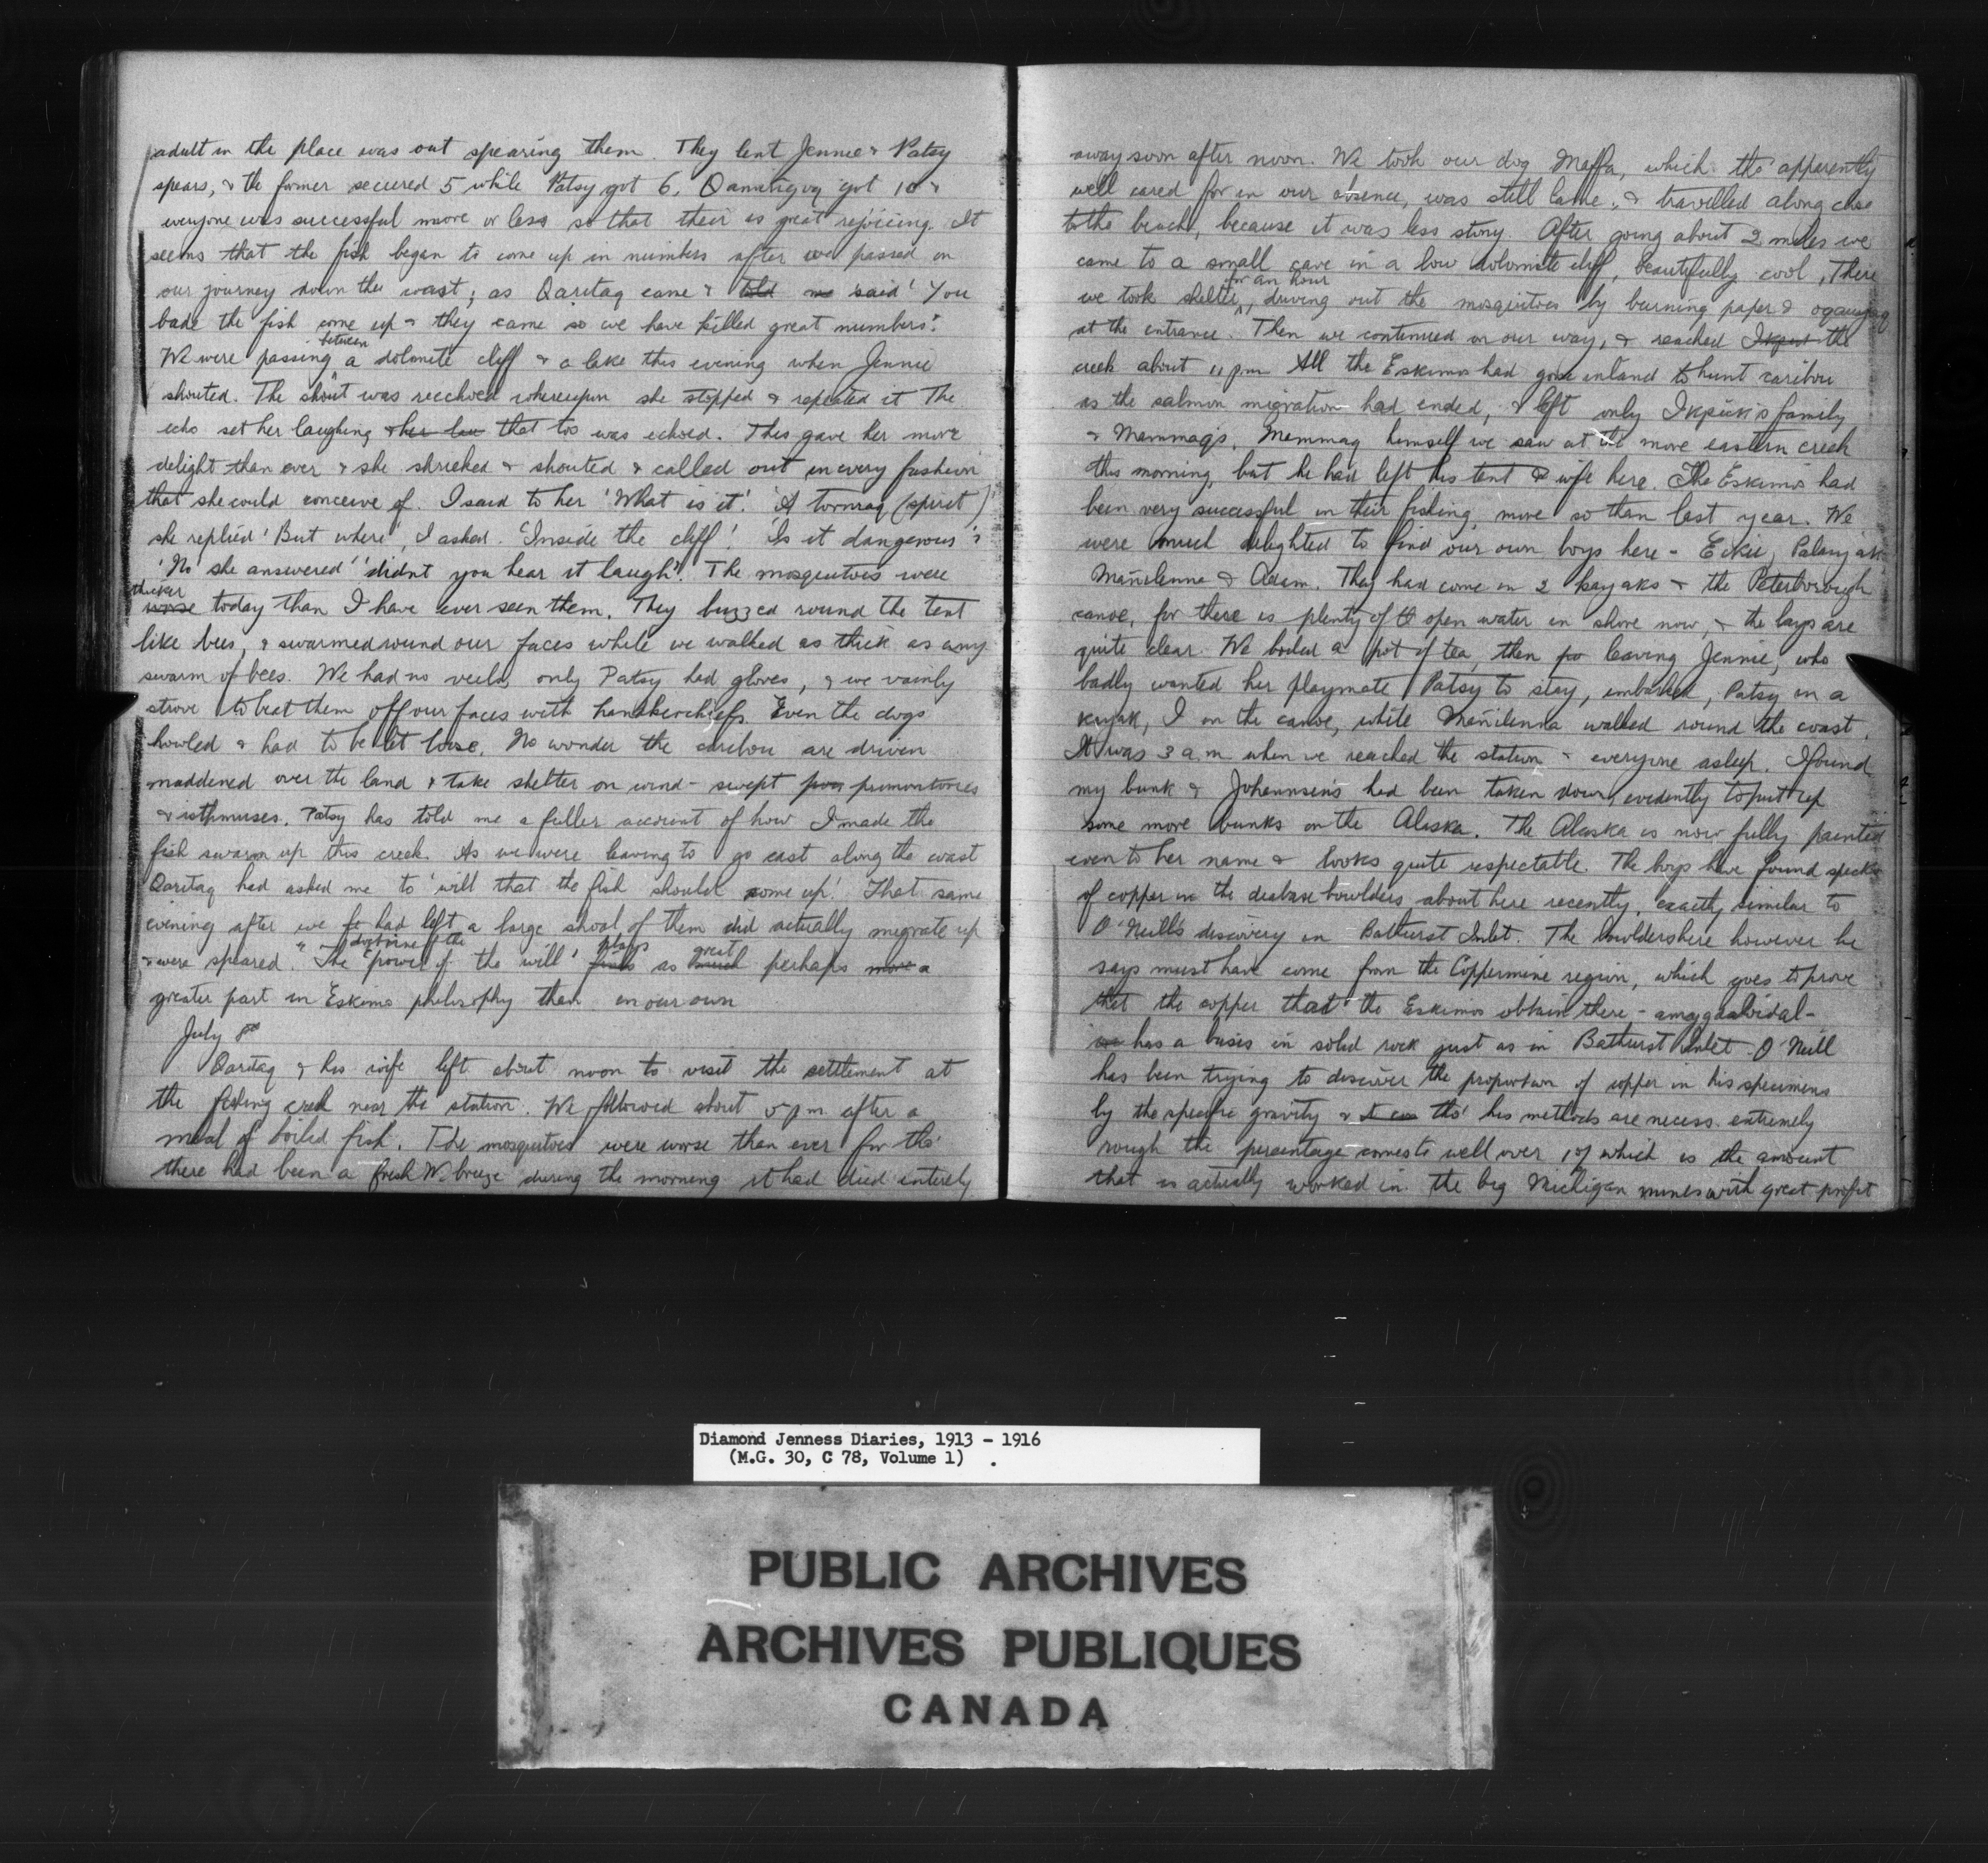 adult in the place was out spearing them. They lent Jennie & Patsy
spears, & the former secured 5 while Patsy got 6. Qamingoq got 10 &
everyone was successful more or less so that their is great rejoicing. It
seems that the fish began to come up in numbers after we passed on
our journey down the coast; as Qaritaq came & told me said 'You
bade the fish come up & they came so we have killed great numbers'.
We were passing between a dolomite cliff & a lake this evening when Jennie
shouted. The shout was reechoed whereupon she stopped & repeated it The
echo set her laughing & her lau that too was echoed. This gave her more
delight than ever & she shrieked & shouted & called out in every fashion
that she could conceive of. I said to her 'What is it'. 'A tornraq (spirit)'
she replied 'But where', I asked. 'Inside the cliff'. 'Is it dangerous'?
'No' she answered 'didnt you hear it laugh'. The mosquitoes were
thicker worse today than I have ever seen them. They buzzed round the tent
like bees, & swarmed round our faces while we walked as thick as any
swarm of bees. We had no veils, only Patsy had gloves, & we vainly
strove to beat them off our faces with handkerchiefs. Even the dogs
howled & had to be let loose. No wonder the caribou are driven
maddened over the land & take shelter on wind-swept promontories
& isthmuses. Patsy has told me a fuller account of how I made the
fish swarm up this creek. As we were leaving to go east along the coast
Qaritaq had asked me to 'will that the fish should come up'. That same
evening after we had left a large shoal of them did actually migrate up
& were speared. The doctrine of the 'power of the will' plays as great perhaps more a
greater part in Eskimo philosophy than in our own
July 8th
Qaritaq & his wife left about noon to visit the settlement at
the fishing creek near the station. We followed about 5 pm after a
meal of boiled fish. The mosquitoes were worse than ever for tho'
there had been a fresh W. breeze during the morning it had died entirely
away soon after noon. We took our dog Maffa, which tho' apparently
well cared for in our absence, was still lame, & travelled along close
to the beach, because it was less stony. After going about 2 miles we
came to a small cave in a low dolomite cliff, beautifully cool. There
we took shelter for an hour, driving out the mosquitoes by burning paper &
at the entrance. Then we continued on our way, & reached Ikpuk the
creek about 11 pm All the Eskimos had gone inland to hunt caribou
as the salmon migration had ended, & left only Ikpuk's family
& Mammaq's. Mammaq himself we saw at the more eastern creek
this morning, but he had left his tent & wife here. The Eskimos had
been very successful in their fishing, more so than last year. We
were much delighted to find our own boys here - Eikie, Palaiyak
Mañilenna & Adam. They had come in 2 kayaks & the Peterborough
canoe, for there is plenty of open water in shore now, & the bays are
quite clear. We boiled a pot of tea, then leaving Jennie, who
badly wanted her playmate Patsy to stay, embarked, Patsy in a
kayak, I in the canoe, while Mañilenna walked round the coast.
It was 3 a.m when we reached the station & everyone asleep. I found
my bunk & Johannsen's had been taken down, evidently to put up
some more bunks on the Alaska. The Alaska is now fully painted
even to her name & looks quite respectable. The boys have found specks
of copper in the diabase boulders about here recently, exactly similar to
O'Neill's discovery in Bathurst Inlet. The boulders here however he
says must have come from the Coppermine region, which goes to prove
that the copper that the Eskimos obtain there - amygdaloidal -
has a basis in solid rock just as in Bathurst Inlet. O'Neill
has been trying to discover the proportion of copper in his specimens
by the specific gravity & tho' his methods are necess. extremely
rough the percentage comes to well over 1% which is the amount
that is actually worked in the big Michigan mines with great profit
Diamond Jenness Diaries, 1913 - 1916
(M.G. 30, C 78, Volume 1) .
PUBLIC ARCHIVES
ARCHIVES PUBLIQUES
CANADA